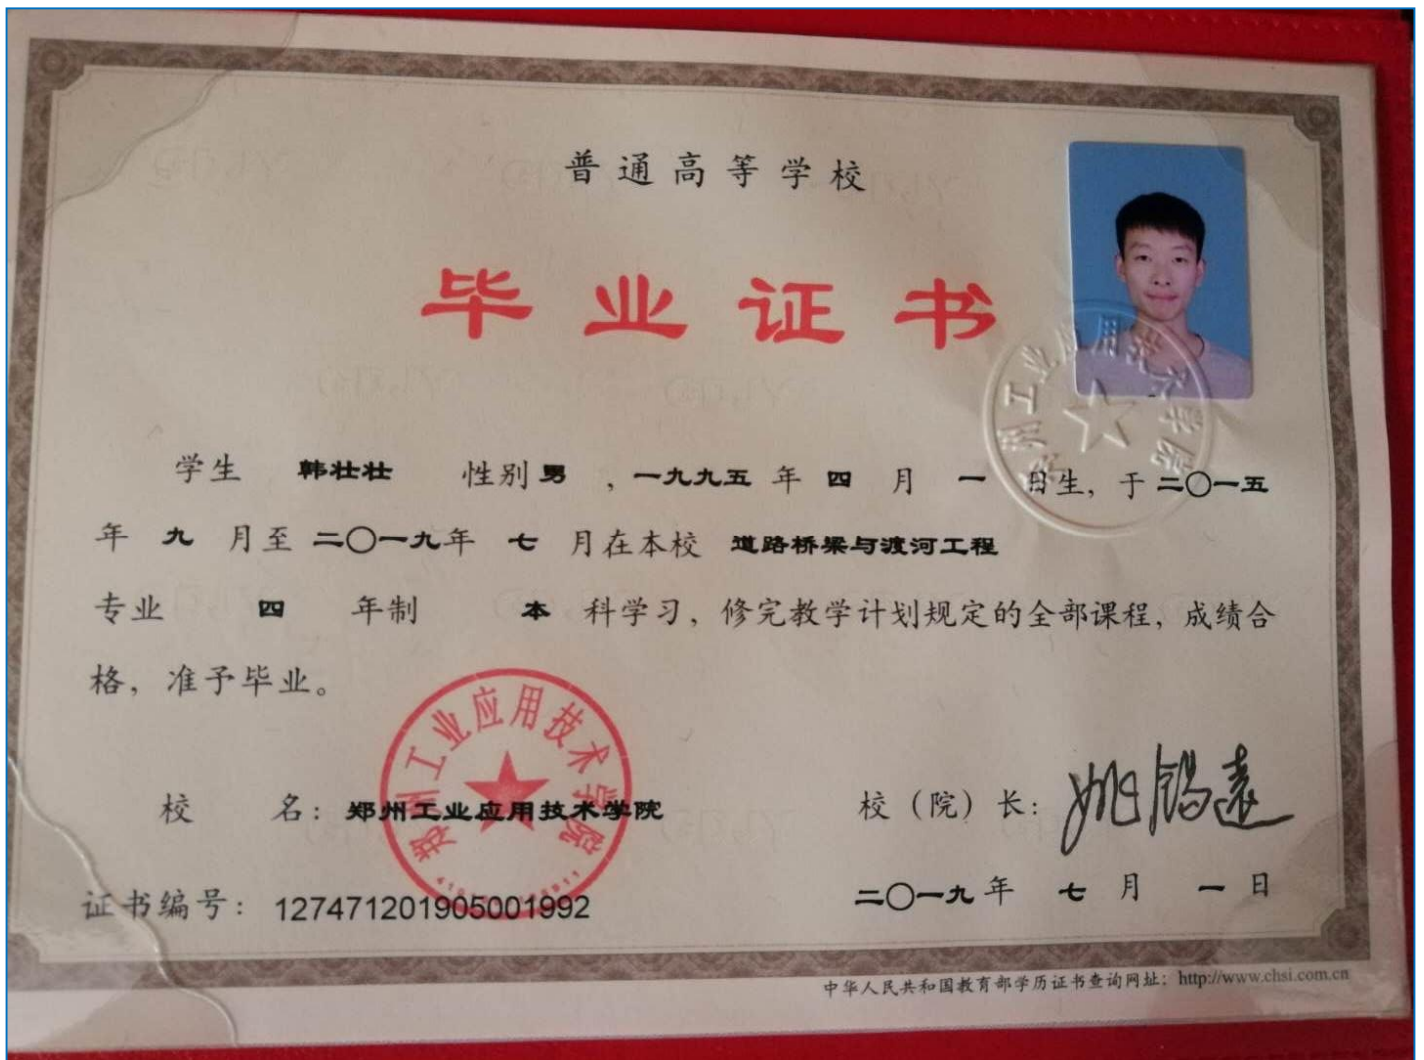 普通高等学校
毕业证书
学生 韩壮壮 性别 男 ，一九九五 年 四 月 一 日生，于 二〇一五
年 九 月至 二〇一九 年 七 月在本校 道路桥梁与渡河工程
专业 四 年制 本 科学习，修完教学计划规定的全部课程，成绩合
格，准予毕业。
郑州工业应用技术学院
郑州工业应用技术学院
校 名：郑州工业应用技术学院
校（院）长：姚锡远
证书编号：127471201905001992
二〇一九 年 七 月 一 日
中华人民共和国教育部学历证书查询网址：http://www.chsi.com.cn